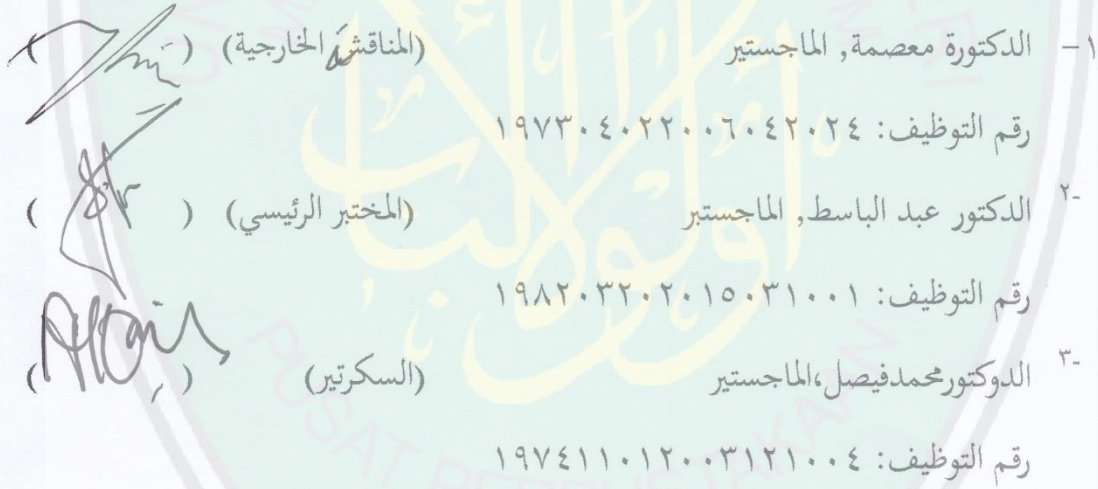 ١- الدكتورة معصمة, الماجستير (المناقشة الخارجية) ( )
رقم التوظيف: ١٩٧٣٠٤٠٢٢٠٠٦٠٤٢٠٢٤
٢- الدكتور عبد الباسط, الماجستير (المختبر الرئيسي) ( )
رقم التوظيف: ١٩٨٢٠٣٢٠٢٠١٥٠٣١٠٠١
٣- الدوكتورمحمدفيصل،الماجستير (السكرتير) ( )
رقم التوظيف: ١٩٧٤١١٠١٢٠٠٣١٢١٠٠٤
أولو الألباب
PUSAT PERPUSTAKAAN